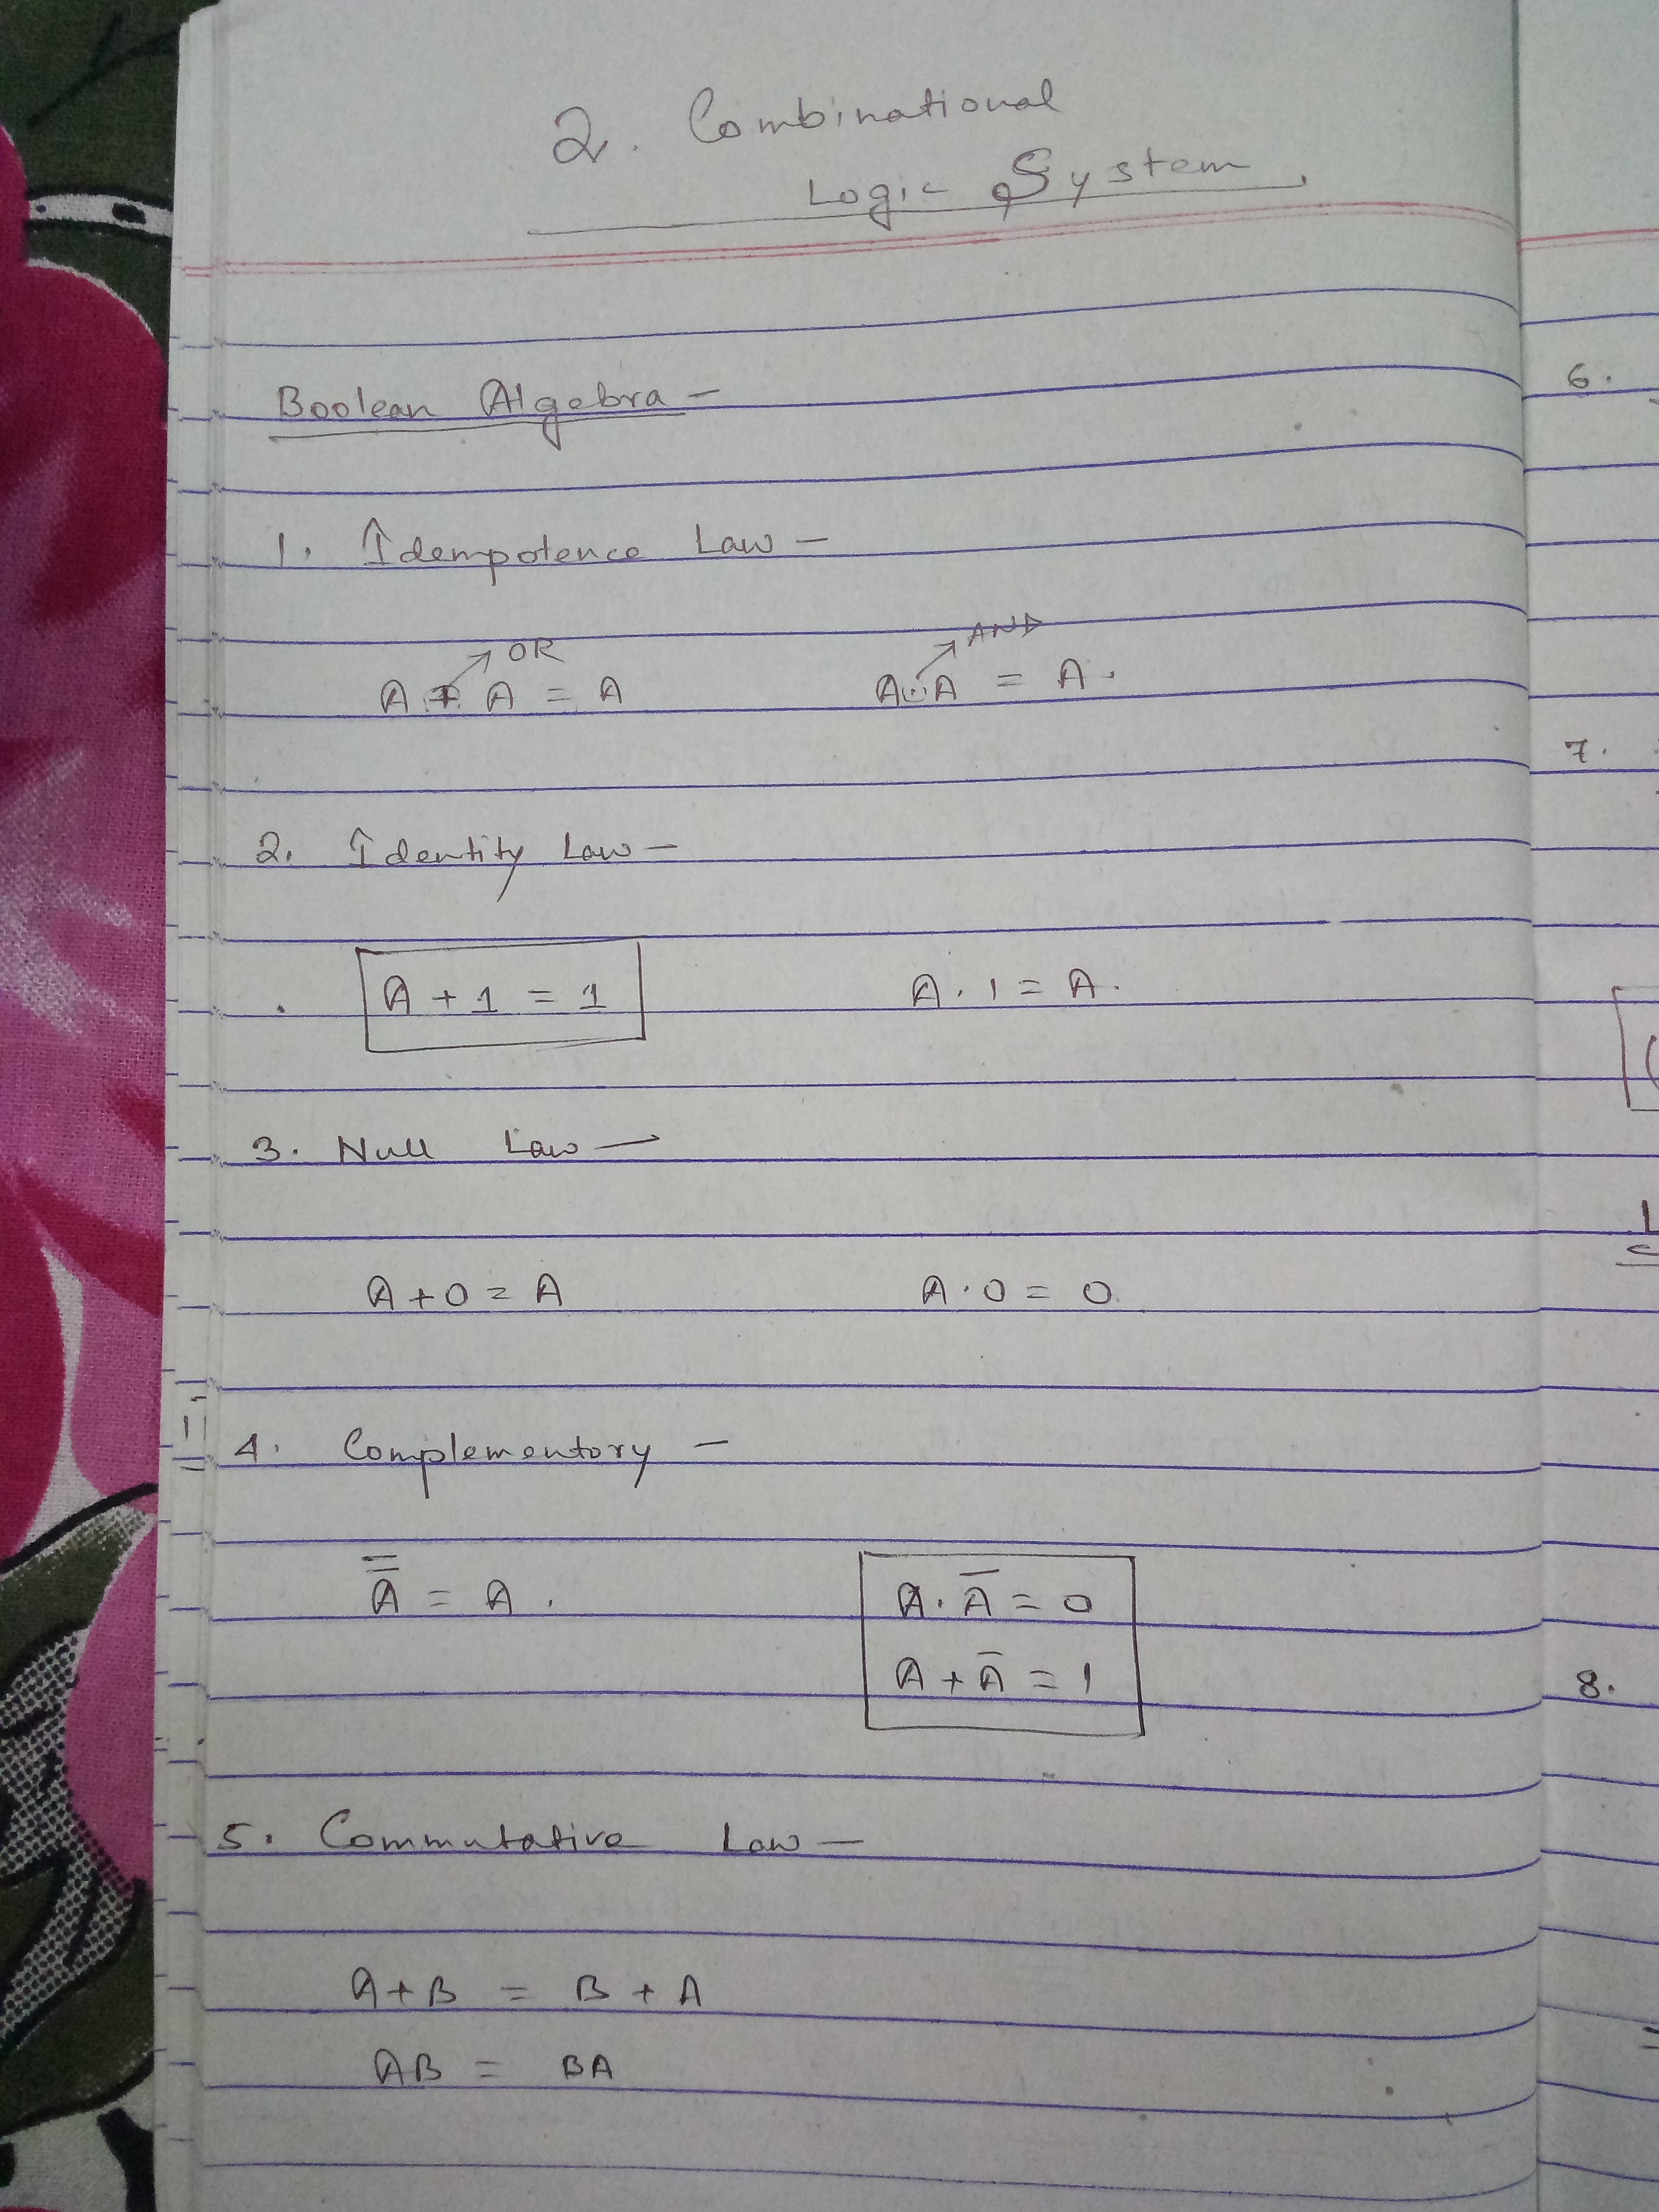 2. Combinational
Logic System
Boolean Algebra -
1. Idempotence Law -
OR
AND
A + A = A
A . A = A.
2. Identity Law -
A + 1 = 1
A . 1 = A.
3. Null Law -
A + 0 = A
A . 0 = 0
4. Complementory -
A̿ = A .
A . A̅ = 0
A + A̅ = 1
5. Commutative Law -
A + B = B + A
AB = BA
6.
7.
8.